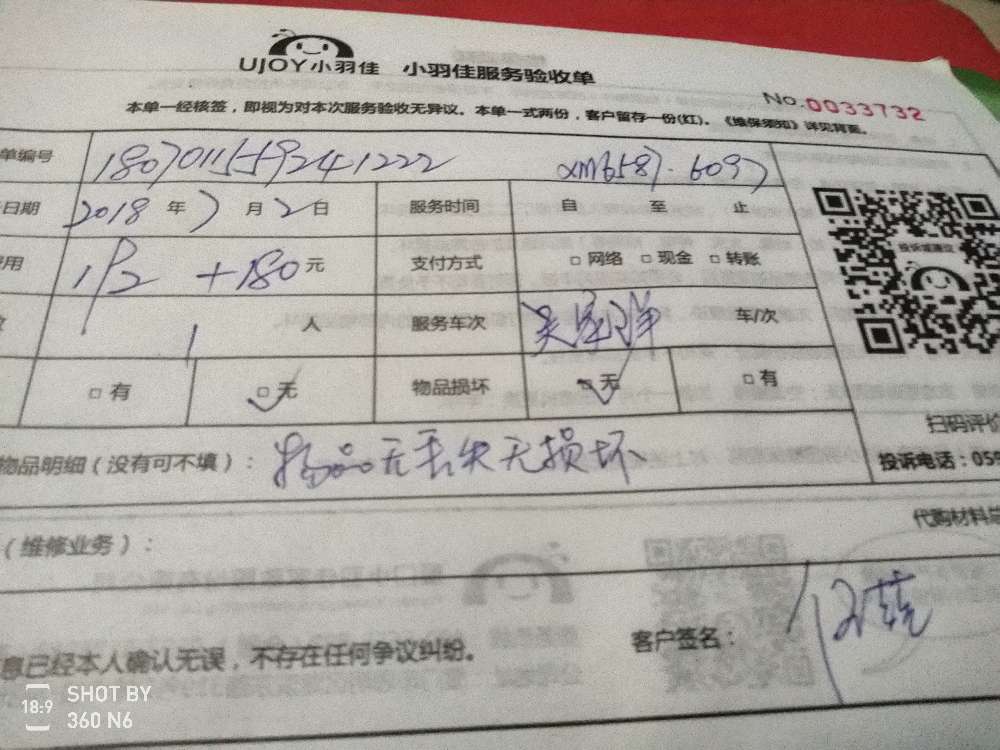 UJOY小羽佳 小羽佳服务验收单
No.0033732
本单一经核签，即视为对本次服务验收无异议。本单一式两份，客户留存一份(红)。《维保须知》详见背面。
单编号 1807011559241222 XM6587.6097
日期 2018年7月2日 服务时间 自 至 止
用 192+180元 支付方式 □网络 □现金 □转账
1人 服务车次 车/次
□有 □无 物品损坏 □无 □有
扫码评价
物品明细（没有可不填）： 物品无丢失无损坏
投诉电话：059
代购材料
（维修业务）：
息已经本人确认无误，不存在任何争议纠纷。 客户签名：
18:9 SHOT BY
360 N6